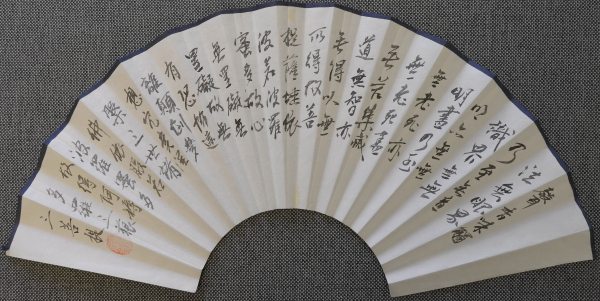 聲香味觸
法無眼界
乃至無意
識界無無
明亦無無
明盡乃至
無老死亦
無老死盡
無苦集滅
道無智亦
無得以無
所得故菩
提薩埵依
波若波羅
蜜多故心
無罣礙無
罣礙故無
有恐怖遠
離顛倒夢
想究竟涅
槃三世諸
佛依般若
波羅蜜多
故得阿耨
多羅三藐
三菩提